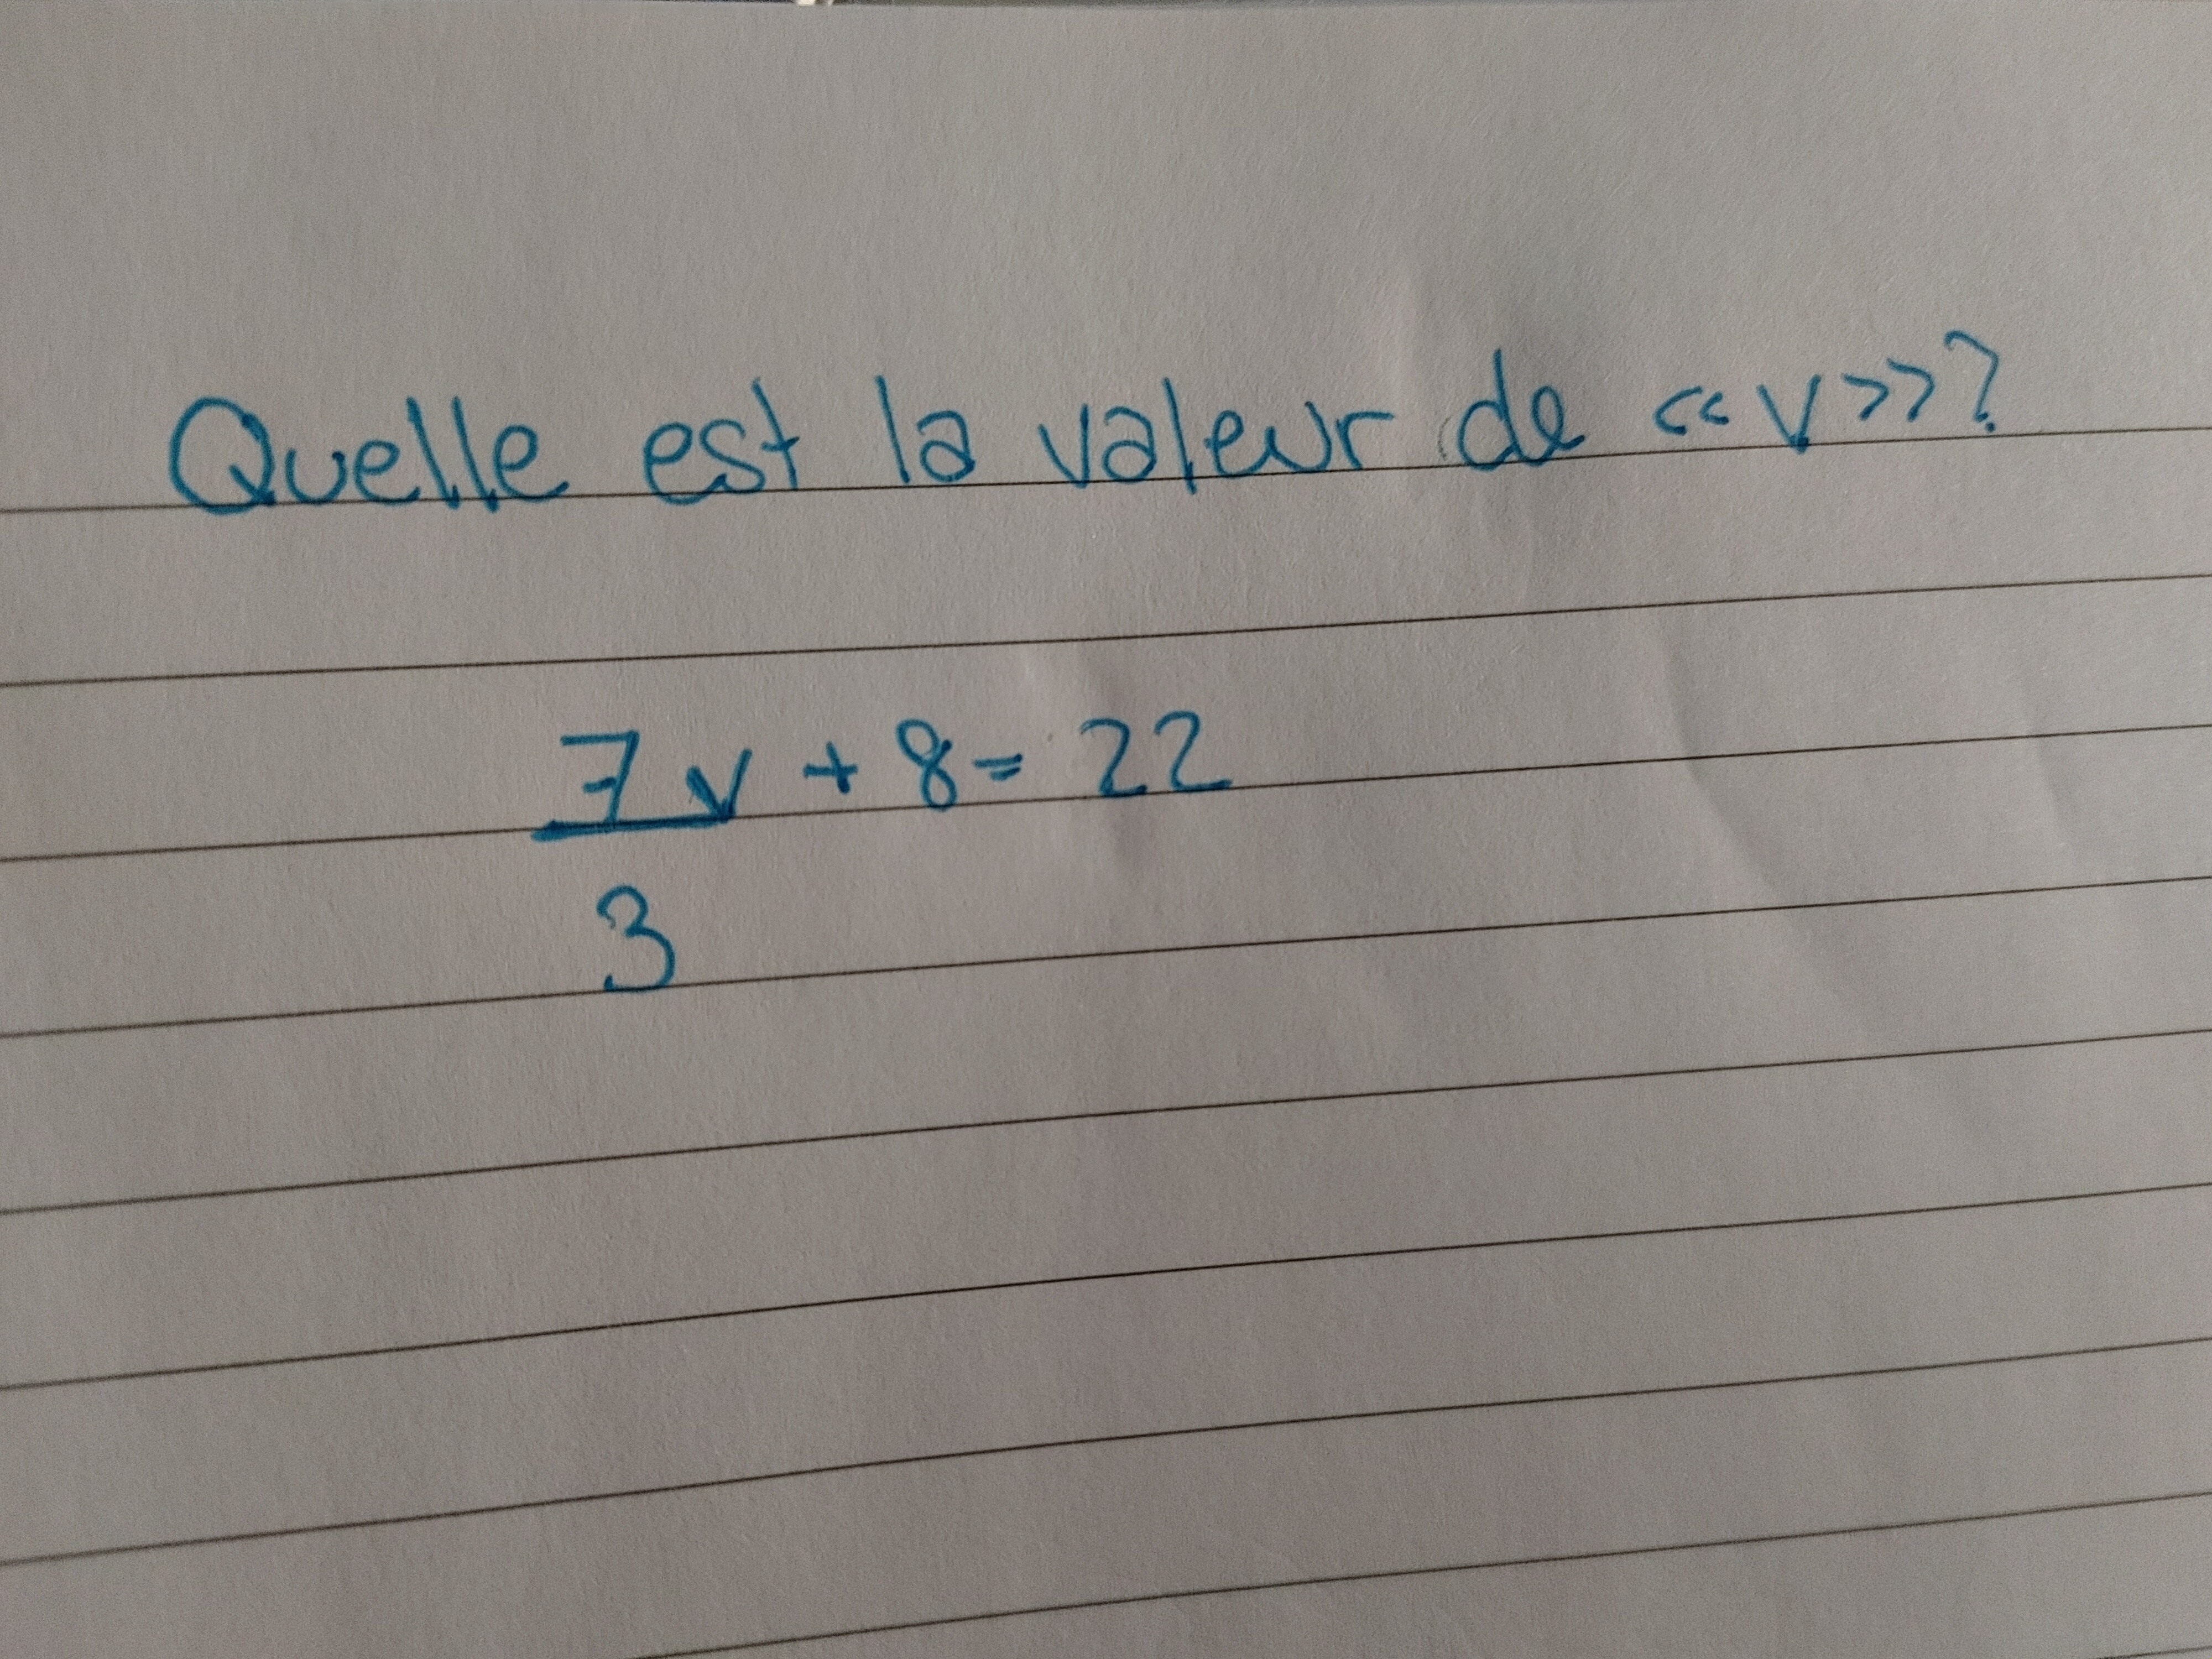 Quelle est la valeur de << v >>?
7v + 8 = 22
3